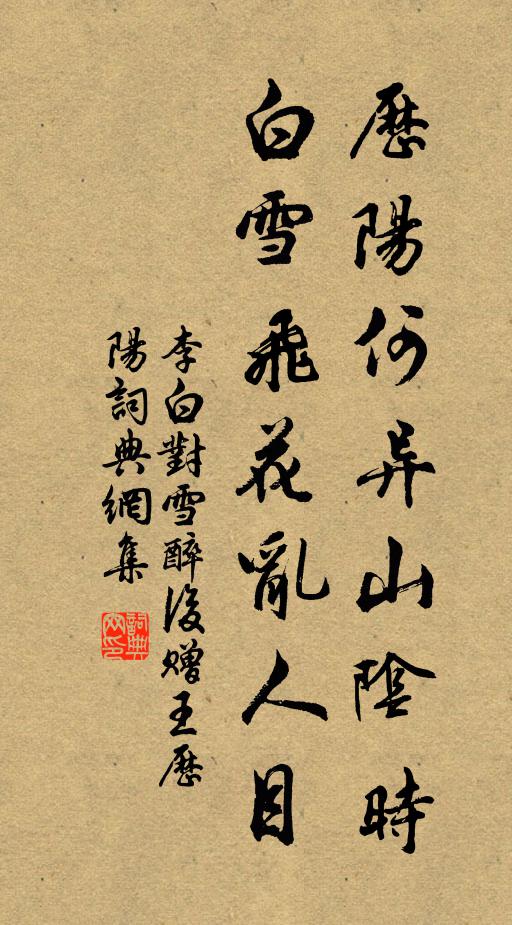 歷陽何异山陰時
白雪飛花亂人目
李白對雪醉後贈王歷
陽詞典網集
詞典网印